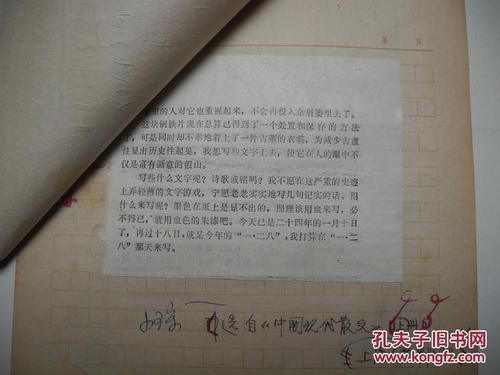 第 页
里的人对它也重视起来，不会再投入杂屑篓里去了。
这块钢铁片现在总算已得到了一个处置和保存的方法
了，可是同时却不幸地着上了一件古董的衣裳，为减少古董
性显出历史性起见，我想写些文字上去，使它在人的眼中不
仅是富有画意的假山。
写些什么文字呢？诗歌或铭吗？我不愿在这严重的史迹
上弄轻薄的文字游戏，宁愿老老实实地写几句记实的话。用
什么来写呢？墨色在纸上是显不出的，照理该用血来写，必
不得已，就用血色的朱漆吧。今天已是二十四年的一月十日
了，再过十八日，就是今年的“一·二八”，我打算在“一·二
八”那天来写。
选自《中国现代散文》上册
上
孔夫子旧书网
www.kongfz.com